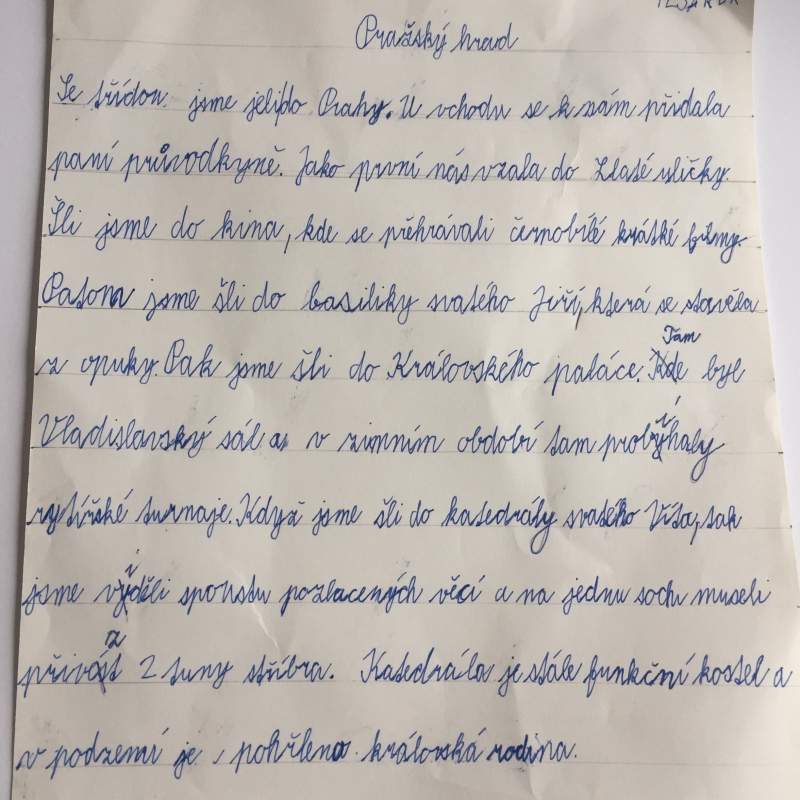 Pražský hrad
Se třídou jsme jeli do Prahy. U vchodu se k nám přidala
paní průvodkyně. Jako první nás vzala do Zlaté uličky
Šli jsme do kina, kde se přehrávali černobílé krátké filmy
Potom jsme šli do basiliky svatého Jiří, která se stavěla
z opuky. Pak jsme šli do Královského paláce. Tam byl
Vladislavský sál a v zimním období tam probíhaly
rytířské turnaje. Když jsme šli do katedrály svatého Víta, tak
jsme viděli spoustu pozlacených věcí a na jednu sochu museli
přivézt 2 tuny stříbra. Katedrála je stále funkční kostel a
v podzemí je pohřbena královská rodina.